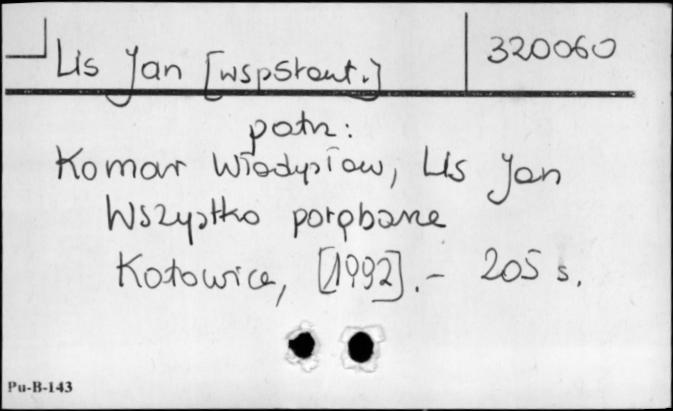 Lis Jan [współaut.] 320060
patrz:
Komar Władysław, Lis Jan
Wszystko porąbane
Katowice, [1992]. - 205 s.
Pu-B-143